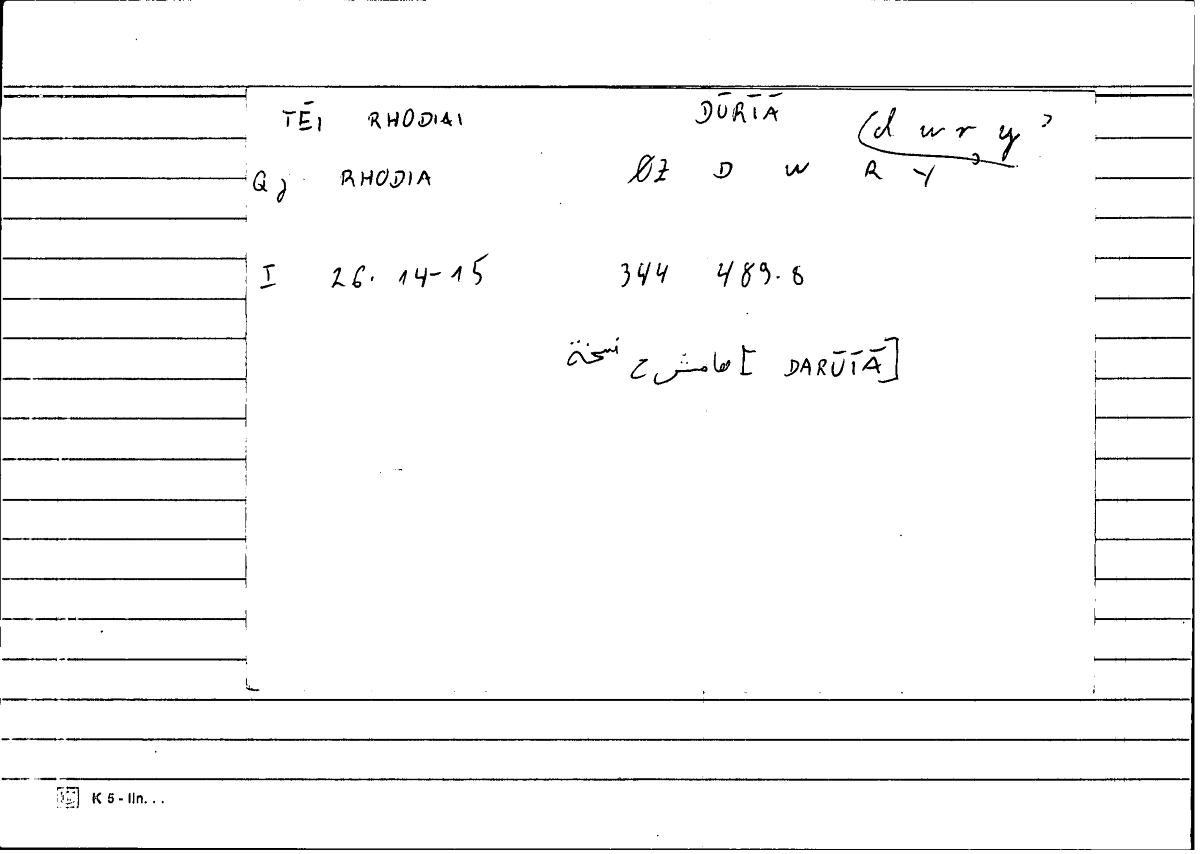 TĒI RHODIAI DŪRĪĀ (d w r y ʾ
Q J RHODIA ØZ D W R Y ʾ
I 26. 14-15 344 489.8
DARŪĪĀ] [هامش ح نسخة
K 5 - lin. . .